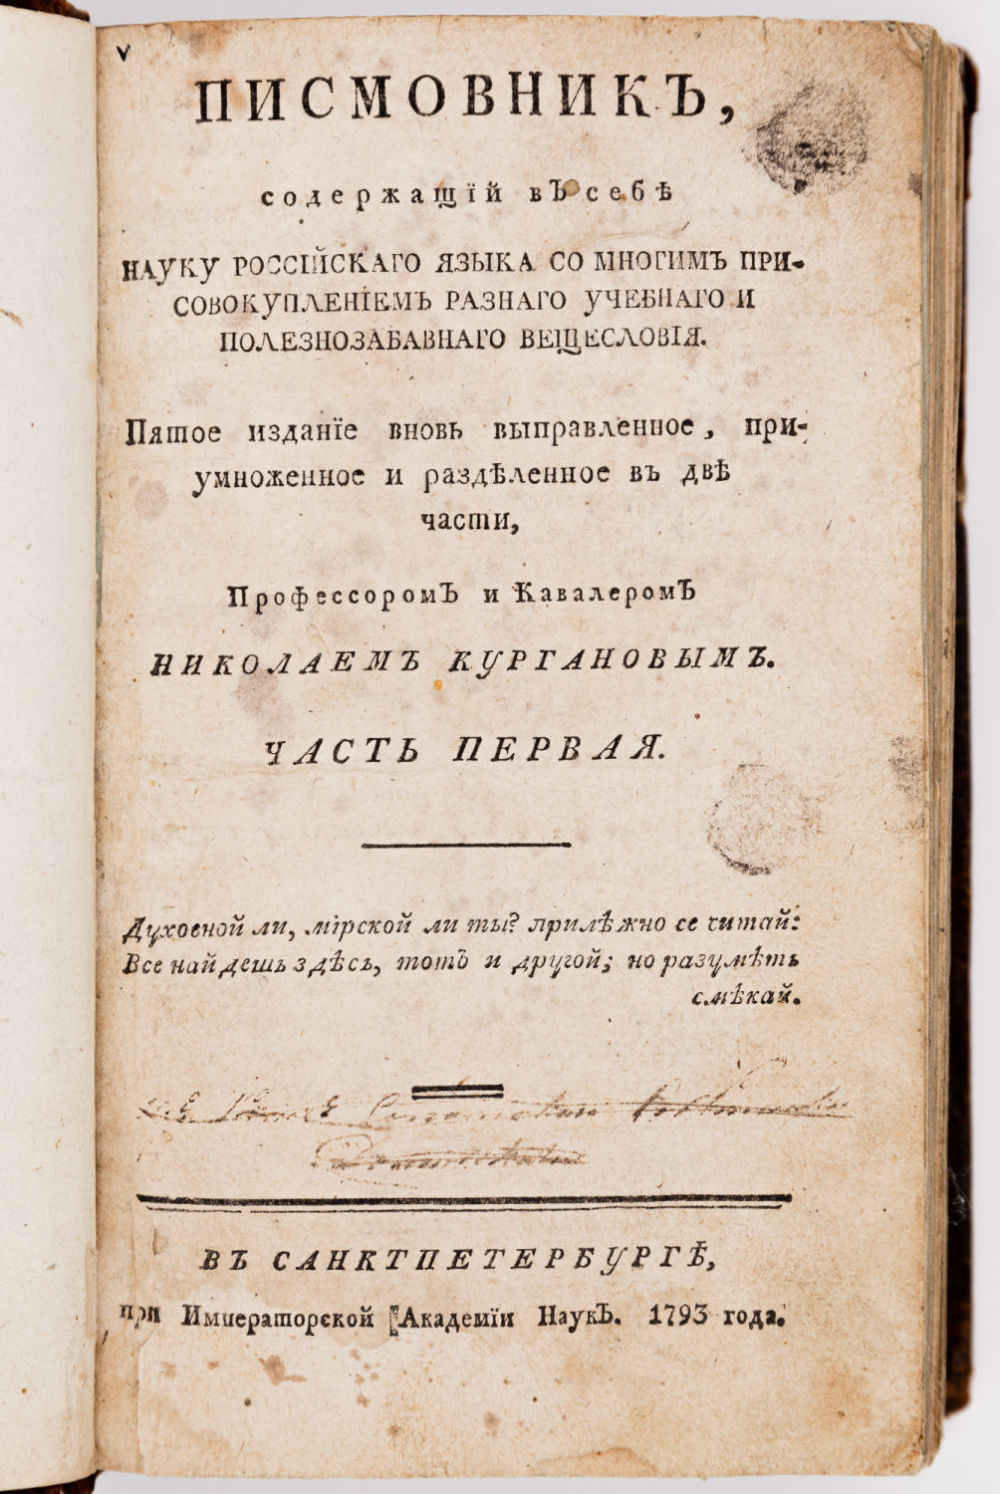 ПИСМОВНИКЪ,
содержащїй въ себѣ
НАУКУ РОССІЙСКАГО ЯЗЫКА СО МНОГИМЪ ПРИ-
СОВОКУПЛЕНІЕМЪ РАЗНАГО УЧЕБНАГО И
ПОЛЕЗНОЗАБАВНАГО ВЕЩЕСЛОВІЯ.
Пятое изданїе вновь выправленное, при-
умноженное и раздѣленное въ двѣ
части,
Профессоромъ и Кавалеромъ
НИКОЛАЕМЪ КУРГАНОВЫМЪ.
ЧАСТЬ ПЕРВАЯ.
Духовной ли, мірской ли ты? прилѣжно се читай:
Все найдешь здѣсь, тотъ и другой; но разумѣть
смѣкай.
ВЪ САНКТПЕТЕРБУРГѢ,
при Императорской Академїи Наукъ. 1793 года.